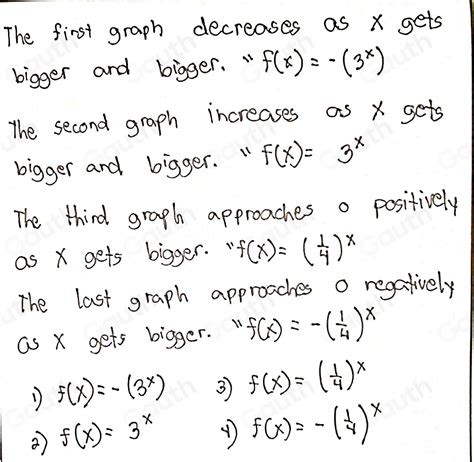 The first graph decreases as x gets
bigger and bigger. " f(x) = -(3^x)
The second graph increases as x gets
bigger and bigger. " f(x) = 3^x
The third graph approaches 0 positively
as x gets bigger. "f(x) = (1/4)^x
The last graph approaches 0 negatively
as x gets bigger. "f(x) = -(1/4)^x
1) f(x) = -(3^x) 3) f(x) = (1/4)^x
2) f(x) = 3^x 4) f(x) = -(1/4)^x